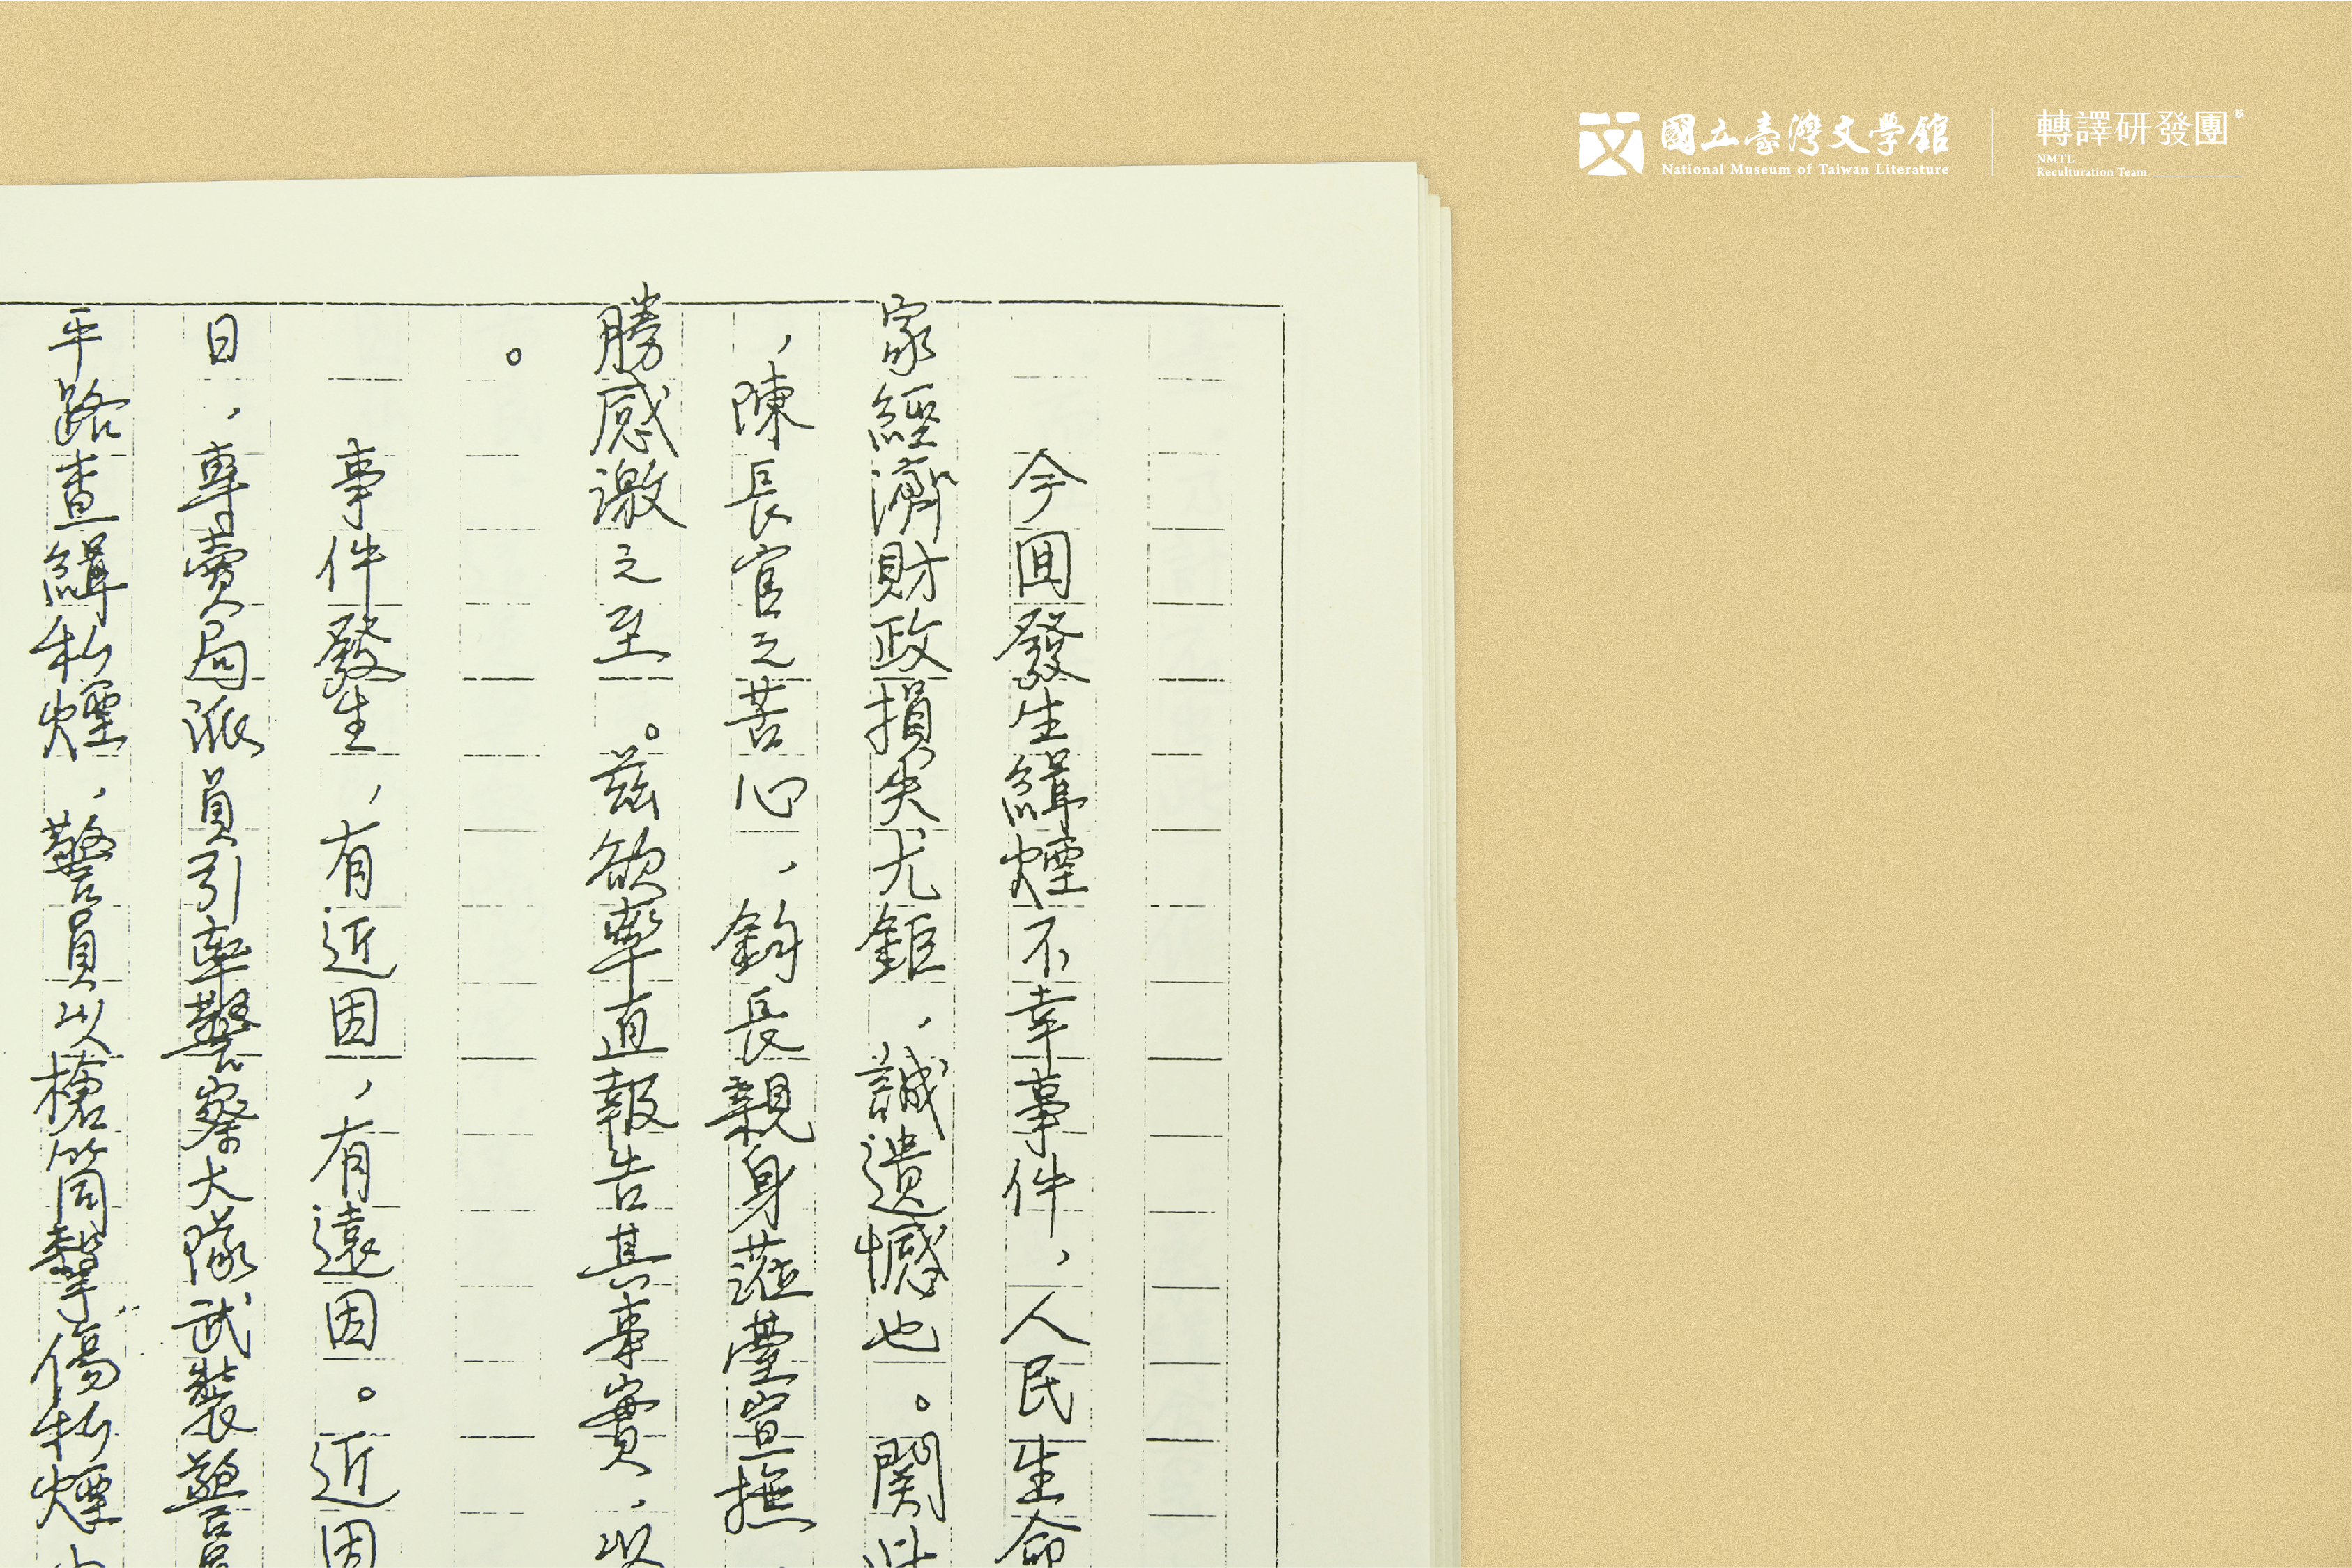 國立臺灣文學館
National Museum of Taiwan Literature
轉譯研發團
NMTL
Reculturation Team
今囬發生緝煙不幸事件，人民生命
家經濟財政損失尤鉅，誠遺憾也。関
，陳長官之苦心，鈞長親身蒞臺宣撫
勝感激之至。茲欲率直報告其事實，以
。
事件發生，有近因，有遠因。近因
日，專賣局派員引率警察大隊武裝警員
平路查緝私煙，警員以槍筒擊傷私煙